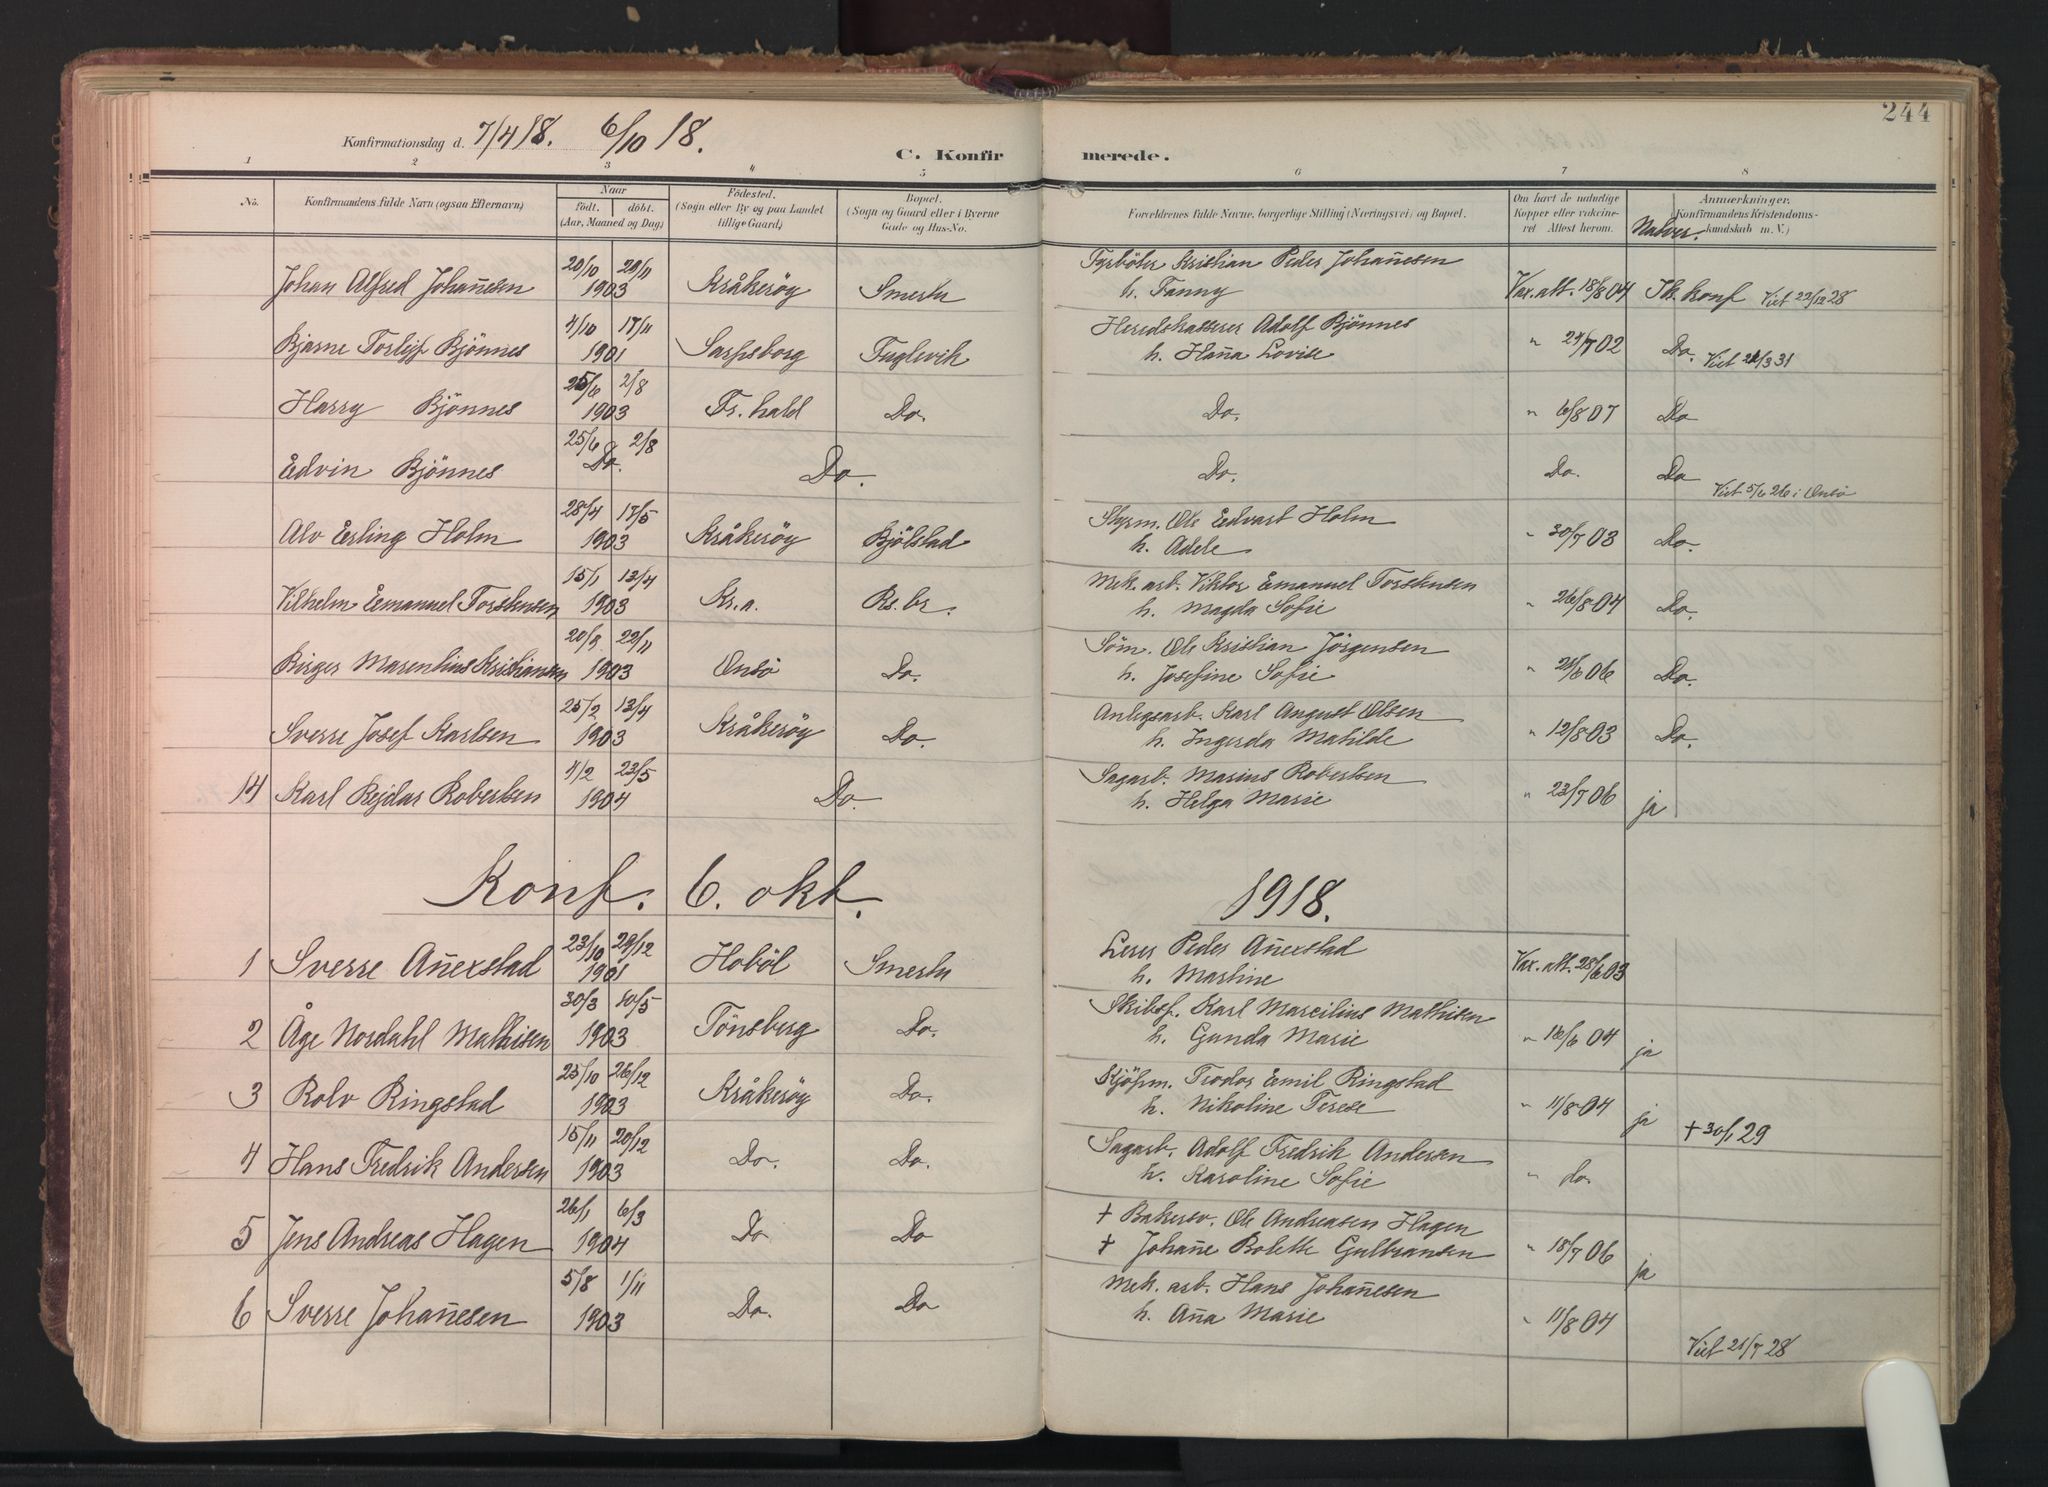 244
Konfirmationsdag d. 7/4 18. 6/10 18.
C. Konfirmerede.
1 2 3 4 5 6 7 8
No. Konfirmandens fulde Navn (ogsaa Efternavn) Naar født. døbt. (Aar, Maaned og Dag) Fødested. (Sogn eller By og paa Landet tillige Gaard) Bopæl. (Sogn og Gaard eller i Byerne Gade og Hus-No. Forældrenes fulde Navne, borgerlige Stilling (Næringsvei) og Bopæl. Om havt de naturlige Kopper eller vaccineret. Attest herom. Anmærkninger. Konfirmandens Kristendomskundskab m. V.)
Nadver.
Johan Alfred Johan̄esen 20/10 29/11 1903 Kråkeröy Smertu Fyrböter Kristian Peder Johan̄esen h. Fanny Vax. att. 18/8 04 Tk. konf Viet 22/12 28
Bjarne Torleif Bjönnes 4/10 17/11 1901 Sarpsborg Fuglevik Heredskasserer Adolf Bjönnes h. Han̄a Lovise " 29/7 02 Do. Viet 21/3 31
Harry Bjönnes 25/6 2/8 1903 Fr.hald Do. Do. " 6/8 07 Do
Edvin Bjönnes 25/6 2/8 Do. Do. Do. Do. Do Viet 5/6 26 i Onsö
Alv Erling Holm 28/4 17/5 1903 Kråkeröy Bjölstad Styrm. Ole Edvart Holm h. Adele " 30/7 03 Do.
Vilhelm Emanuel Torstensen 15/1 13/4 1903 Kr.a. Rs.br. Mek. arb. Viktor Emanuel Torstensen h. Magda Sofie " 26/8 04 Do.
Birger Marentius Kristiansen 20/8 22/11 1903 Onsö Do. Söm. Ole Kristian Jörgensen h. Josefine Sofie " 21/6 06 Do.
Sverre Josef Karlsen 25/2 13/4 1903 Kråkeröy Do. Anlegsarb. Karl August Olsen h. Ingerda Matilde " 12/8 03 Do.
14 Karl Rejdar Robertsen 4/2 23/5 1904 Do. Sagarb. Marius Robertsen h. Helga Marie " 23/7 06 ja
Konf. 6. okt. 1918.
1 Sverre An̄erstad 23/10 29/12 1901 Hoböl Smertu Lerer Peder An̄erstad h. Martine Vax. att. 28/6 03
2 Åge Nordahl Mathisen 30/3 10/5 1903 Tönsberg Do. Skibsf. Karl Marcilius Mathisen h. Gunda Marie " 16/6 04 ja
3 Rolv Ringstad 25/10 26/12 1903 Kråkeröy Do. Kjöpm. Teodor Emil Ringstad h. Nikoline Terese " 11/8 04 ja + 30/1 29
4 Hans Fredrik Andersen 15/11 20/12 1903 Do. Do. Sagarb. Adolf Fredrik Andersen h. Karoline Sofie " do.
5 Jens Andreas Hagen 26/1 6/3 1904 Do Do + Bakersv. Ole Andreasen Hagen + Johan̄e Bolette Gulbransen " 18/7 06 ja
6 Sverre Johan̄esen 5/8 1/11 1903 Do. Do Mek. arb. Hans Johan̄esen h. An̄a Marie " 11/8 04 Viet 21/7 28